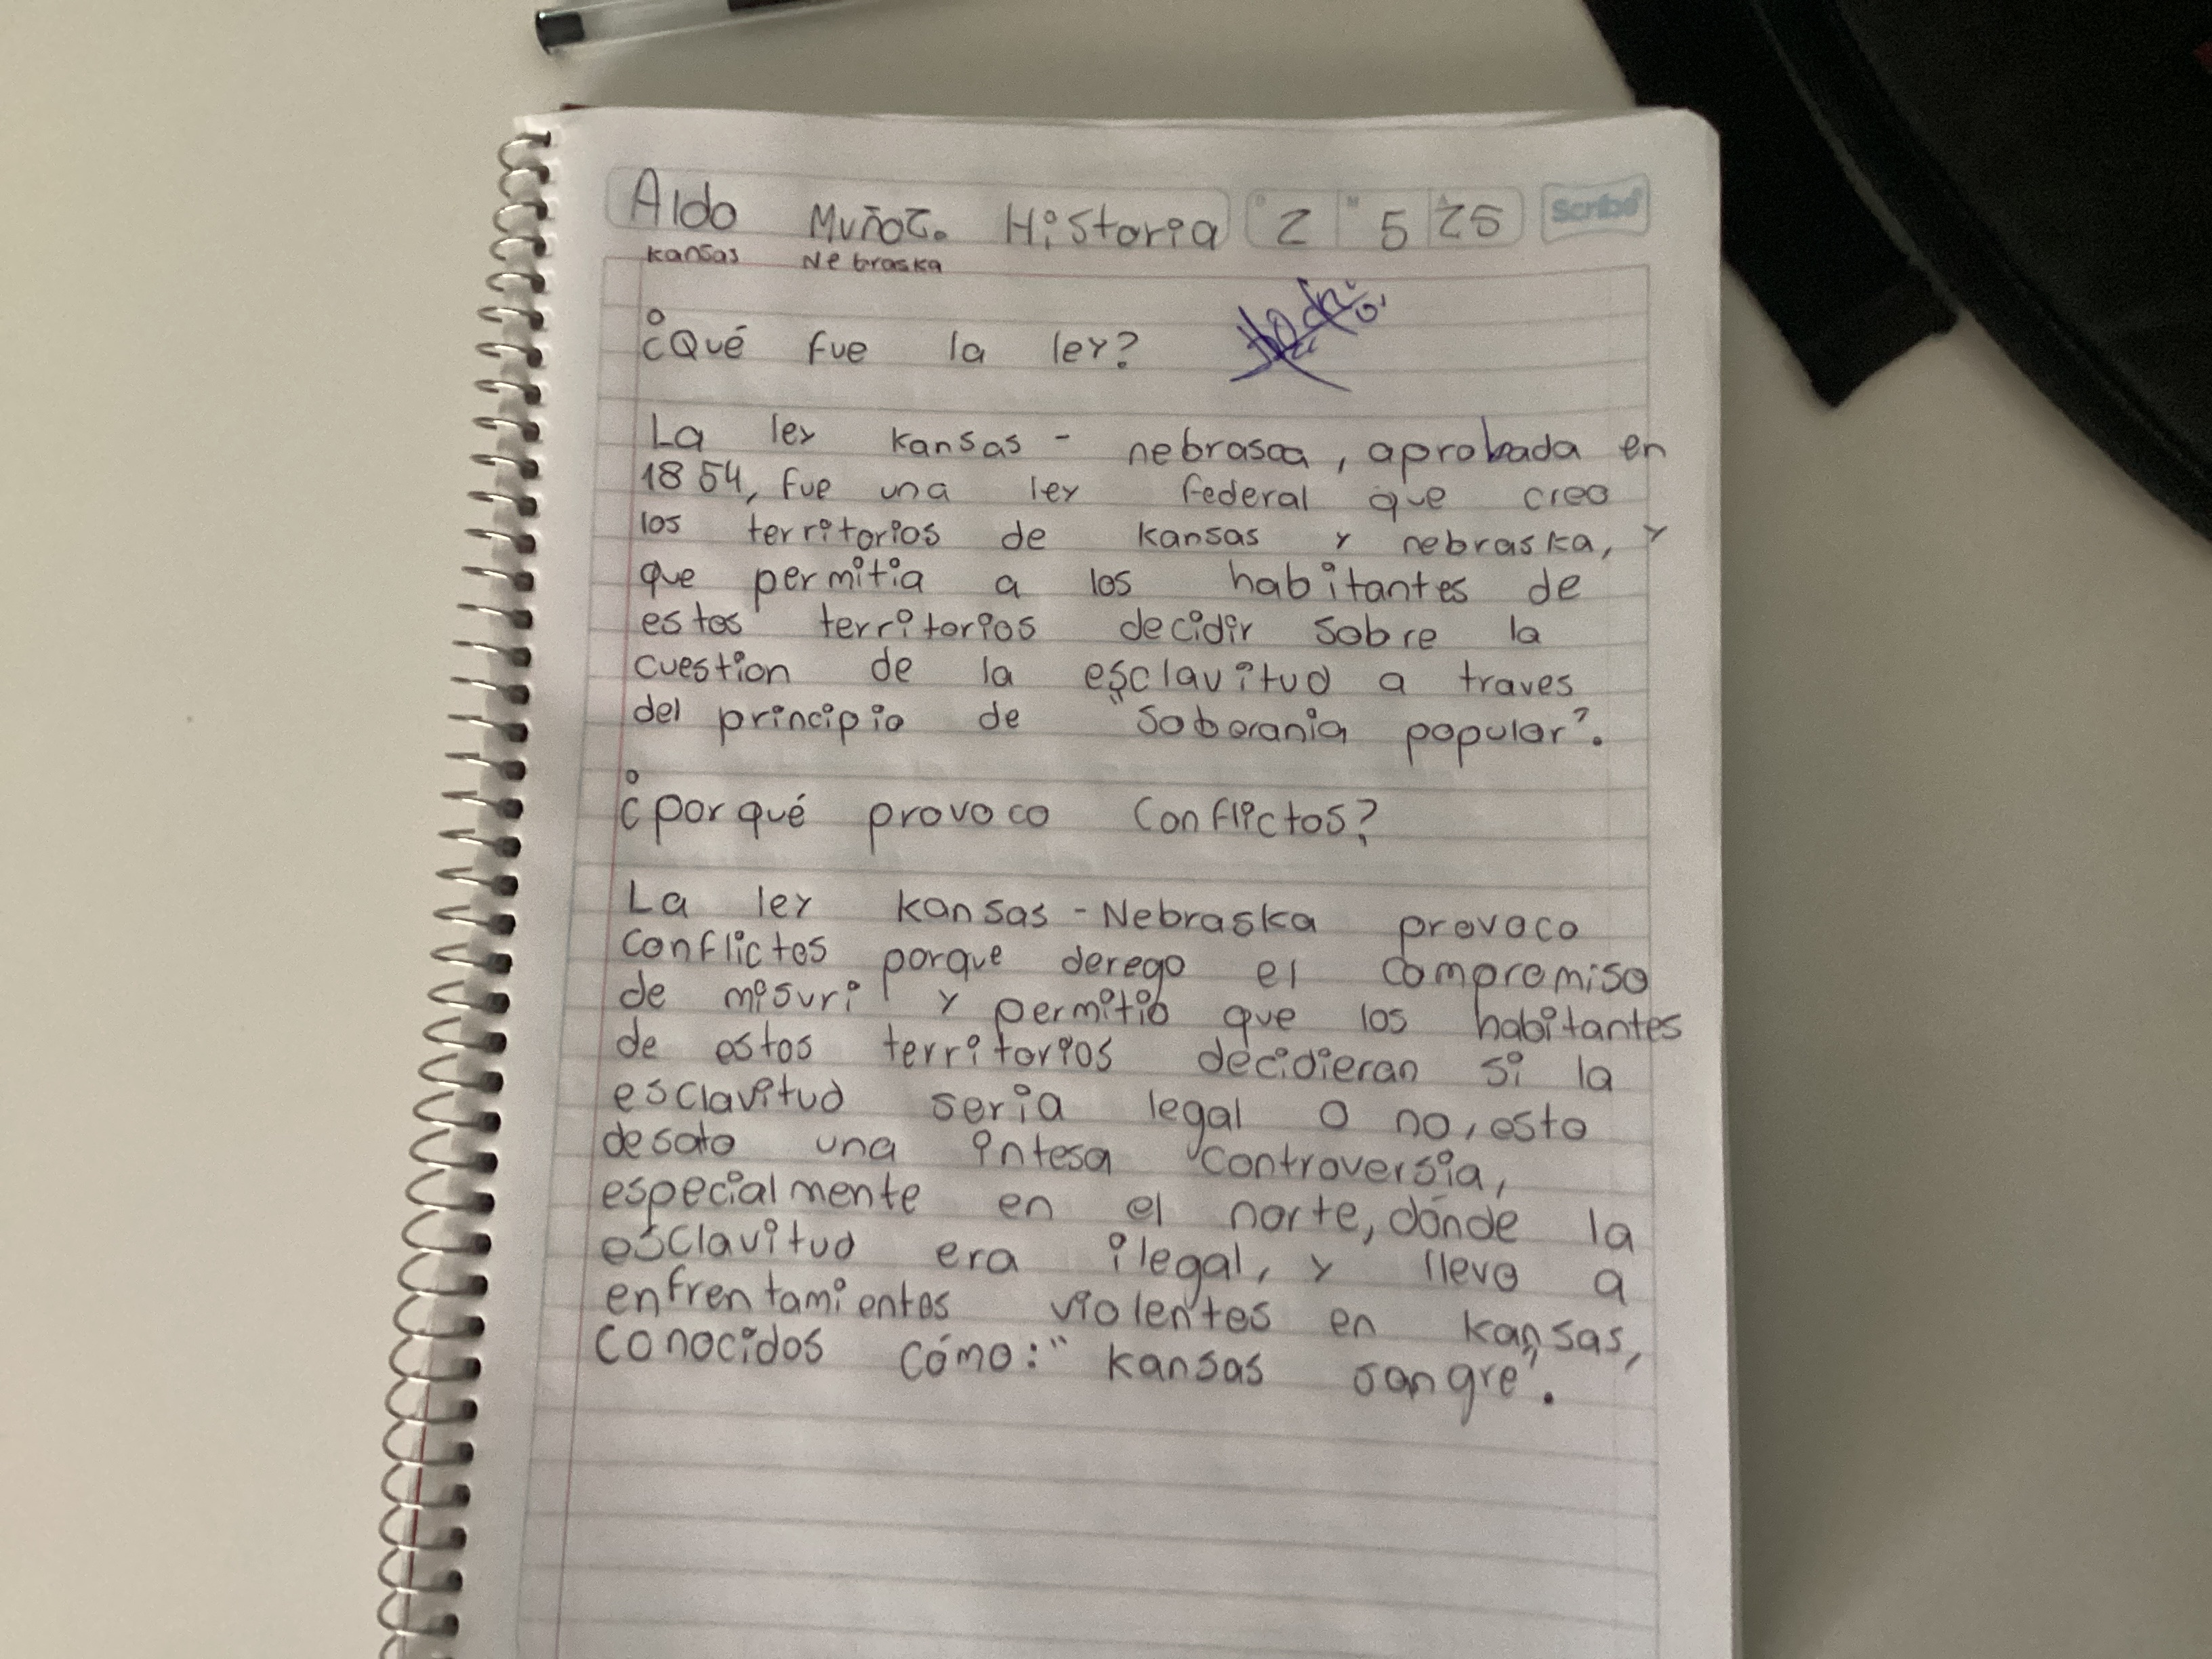 Aldo Muñoz. Historia 2 5 25 Scribe
Kansas Nebraska
¿Qué fue la ley?
La ley kansas - nebrasca, aprobada en
1854, fue una ley federal que creo
los territorios de kansas y nebraska, y
que permitia a los habitantes de
estos territorios decidir sobre la
cuestion de la esclavitud a traves
del principio de "soberania popular".
¿porqué provoco conflictos?
La ley kansas - Nebraska provoco
conflictos porque derego el compromiso
de misuri y permitio que los habitantes
de estos territorios decidieran si la
esclavitud seria legal o no, esto
desato una intesa controversia,
especialmente en el norte, dónde la
esclavitud era ilegal, y llevo a
enfrentamientos violentos en kansas,
conocidos cómo: "kansas sangre".